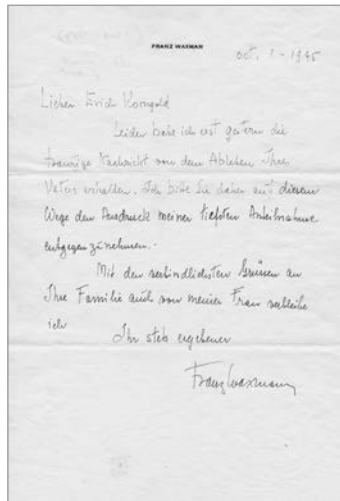 FRANZ WAXMAN
Oct. 1 - 1945
Lieber Erich Korngold
Leider habe ich erst gestern die
traurige Nachricht von dem Ableben Ihres
Vaters erhalten. Ich bitte Sie daher auf diesem
Wege den Ausdruck meiner tiefsten Anteilnahme
entgegenzunehmen.
Mit den verbindlichsten Grüssen an
Ihre Familie auch von meiner Frau verbleibe
ich
Ihr stets ergebener
Franz Waxmann